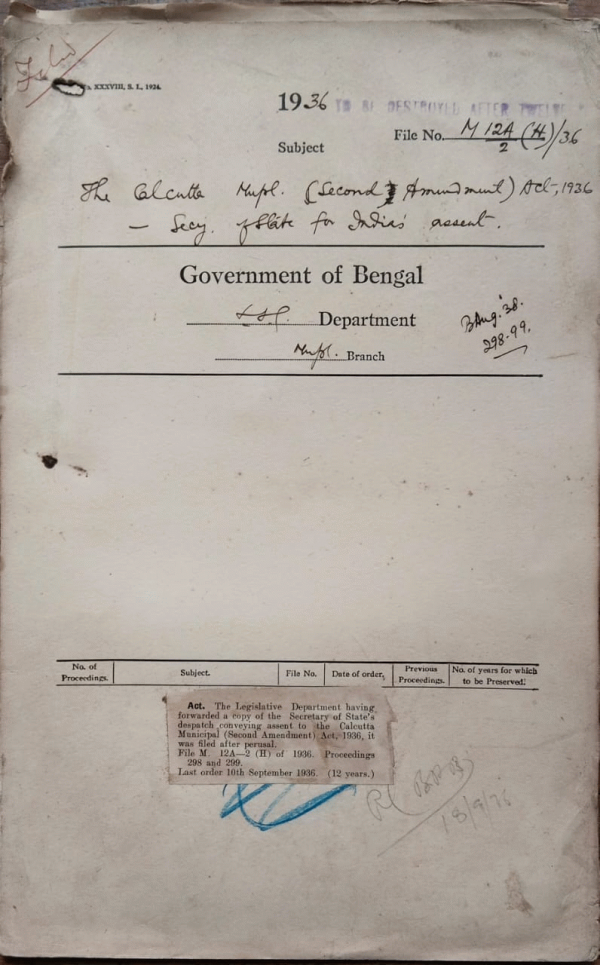 XXXVIII, S. L., 1924.
1936 TO BE DESTROYED AFTER TWELVE
File No. M 12A/2 (H)/36
Subject
The Calcutta Mupl. (Second Amendment) Act, 1936
— Secy. of State for India's assent.
Government of Bengal
L.S.G. Department
B Aug. '38.
298-99.
Mupl. Branch
No. of Proceedings. Subject. File No. Date of order. Previous Proceedings. No. of years for which to be Preserved.
Act. The Legislative Department having
forwarded a copy of the Secretary of State's
despatch conveying assent to the Calcutta
Municipal (Second Amendment) Act, 1936, it
was filed after perusal.
File M. 12A—2 (H) of 1936. Proceedings
298 and 299.
Last order 10th September 1936. (12 years.)